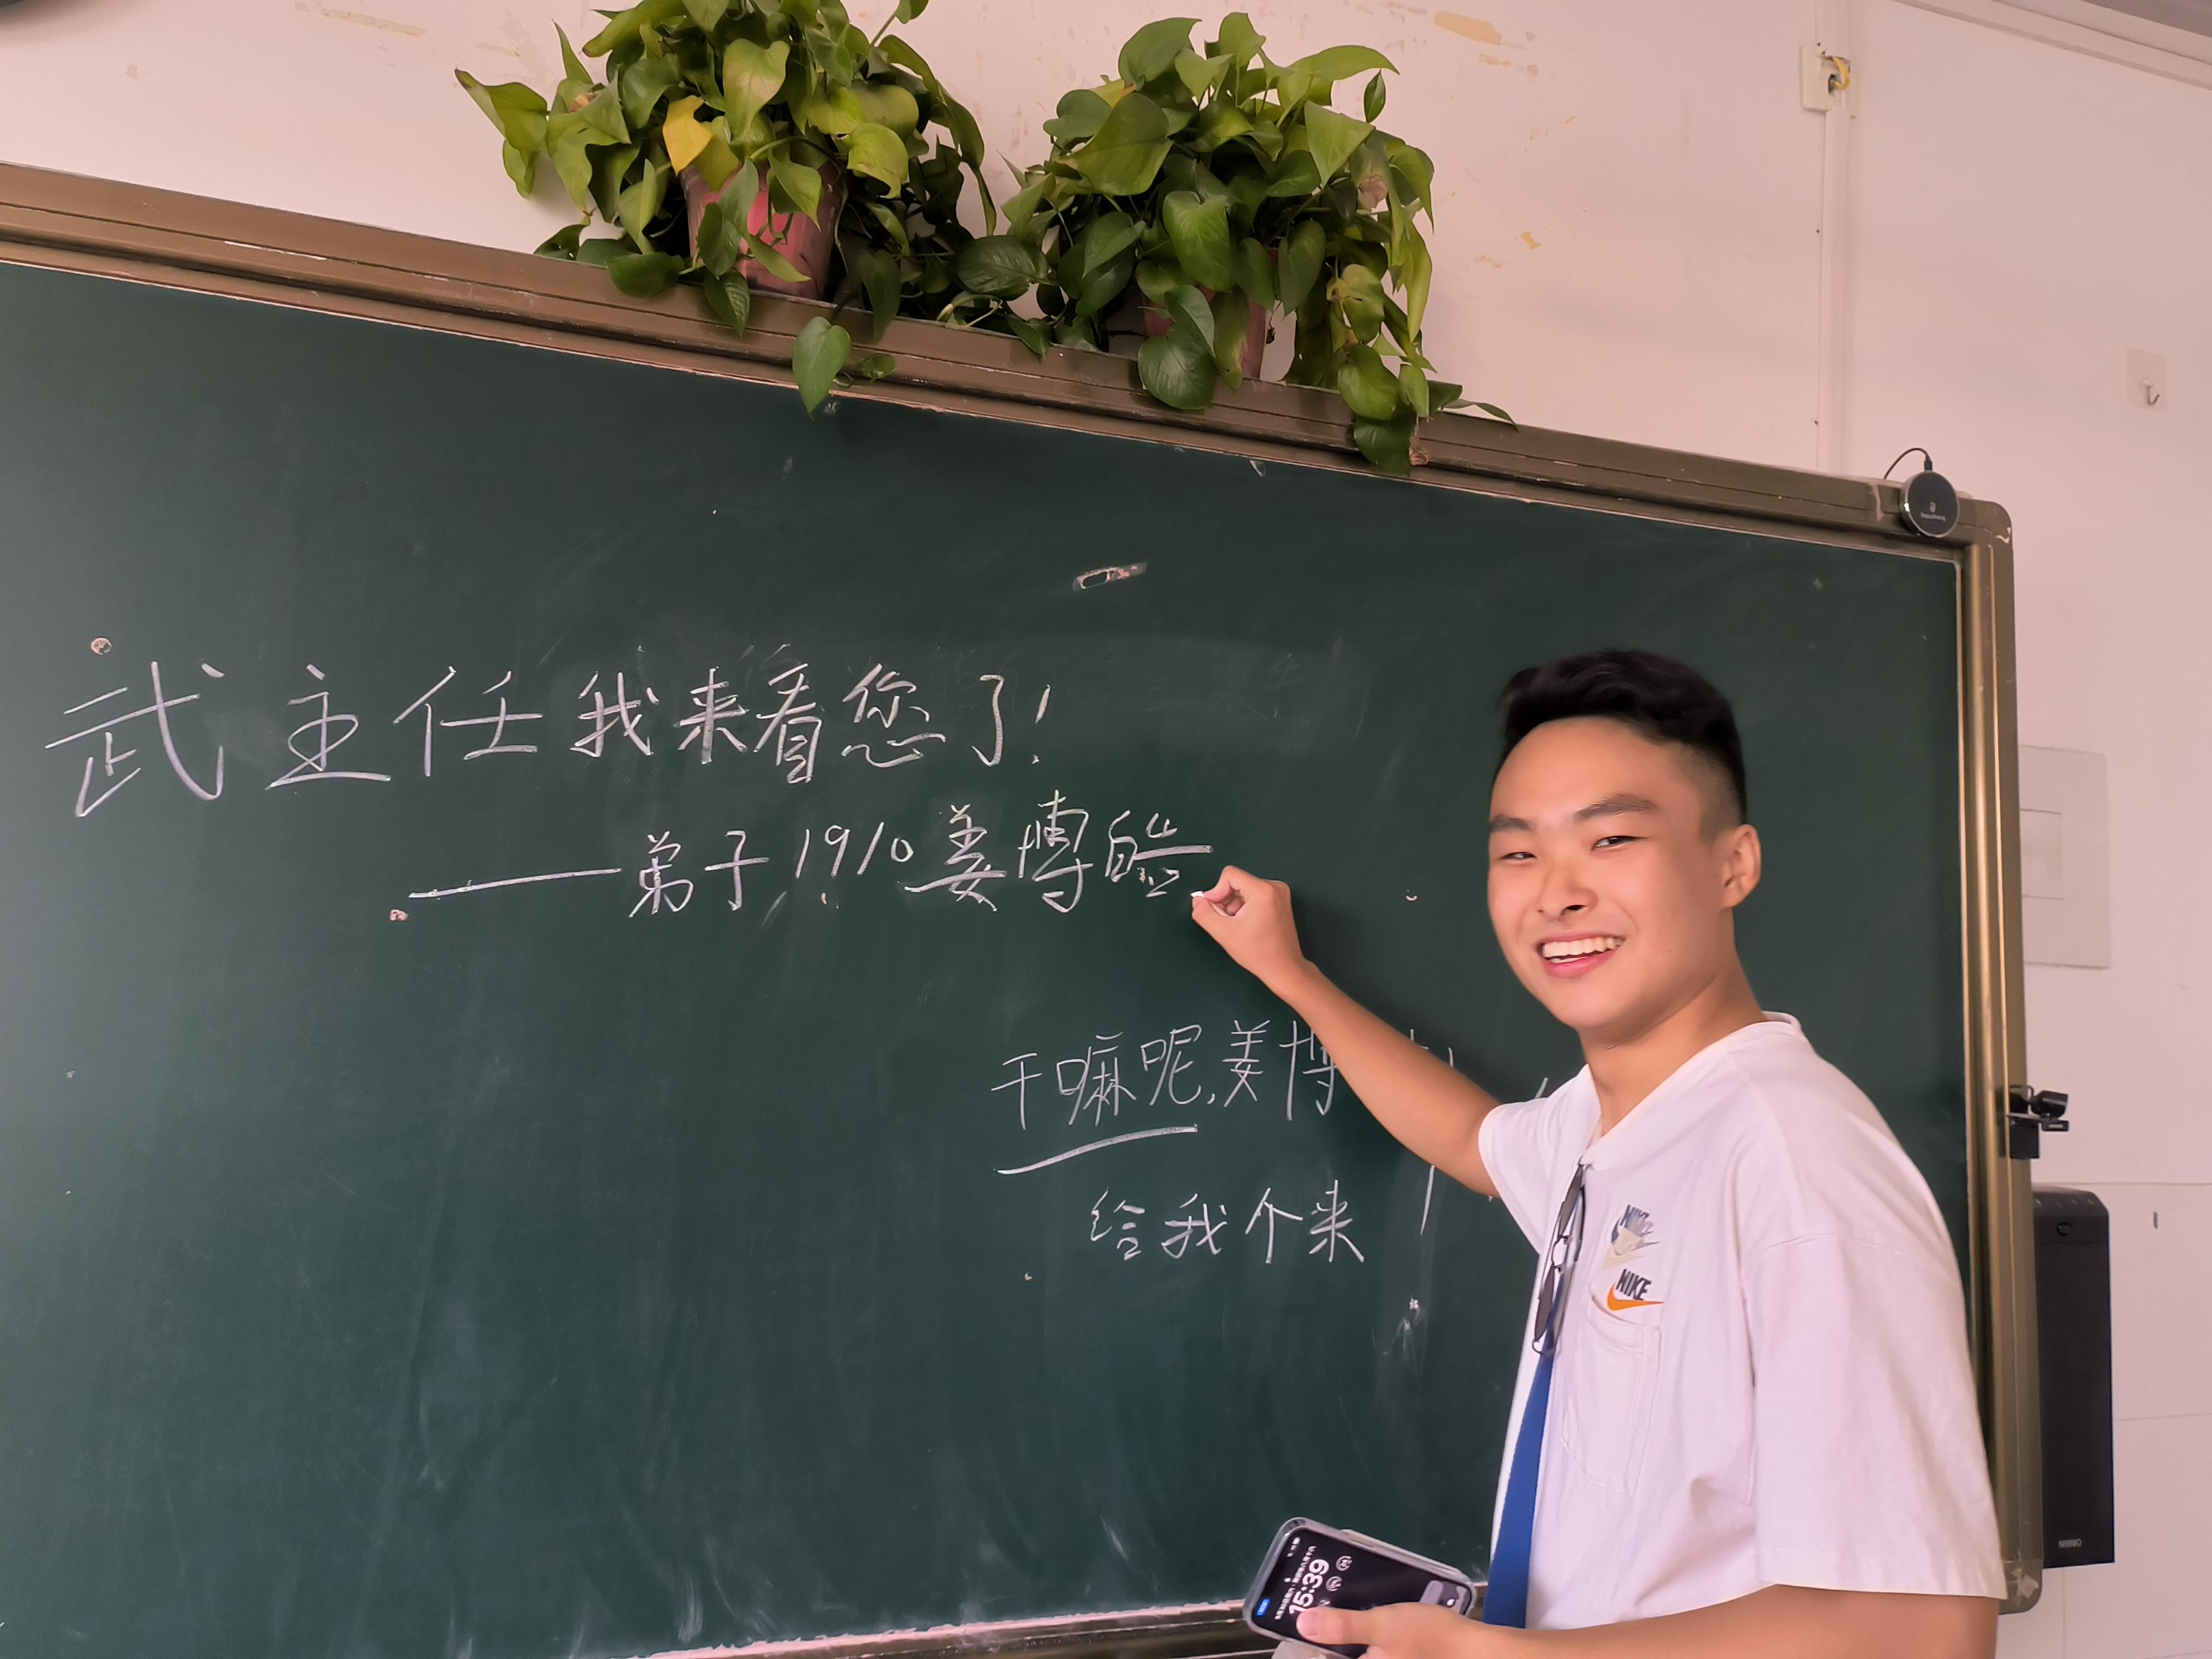 武主任我来看您了!
——弟子1910姜博皓
干嘛呢,姜博
给我个来
NIKE
NIKE
15:39